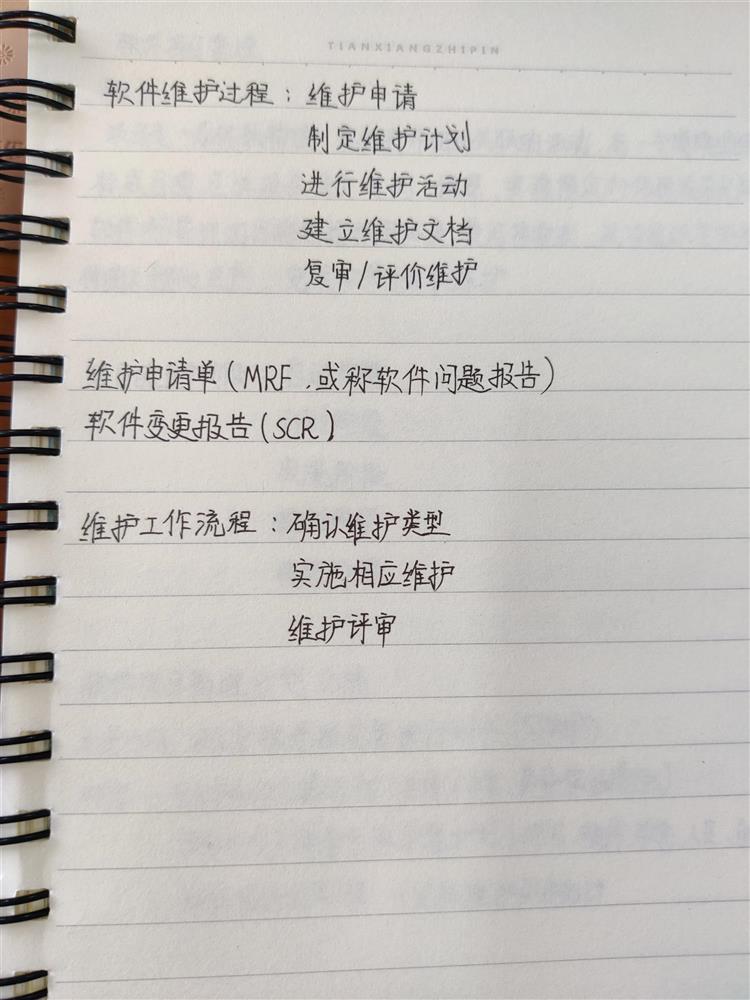 TIANXIANGZHIPIN
软件维护过程：维护申请
制定维护计划
进行维护活动
建立维护文档
复审/评价维护
维护申请单(MRF，或称软件问题报告)
软件变更报告(SCR)
维护工作流程：确认维护类型
实施相应维护
维护评审